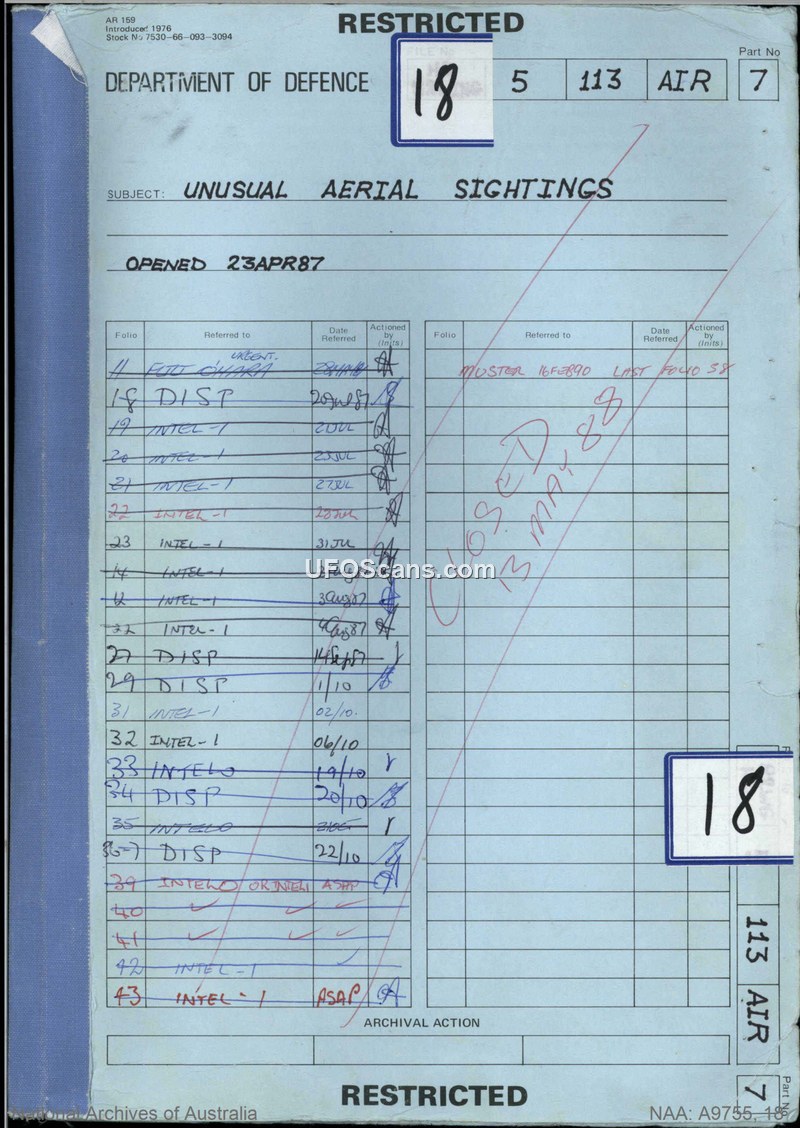 AR 159
Introduced 1976
Stock No 7530-66-093-3094
RESTRICTED
FILE No
Part No
DEPARTMENT OF DEFENCE
18 5 113 AIR 7
SUBJECT: UNUSUAL AERIAL SIGHTINGS
OPENED 23APR87
Folio Referred to Date Referred Actioned by (Inits)
Folio Referred to Date Referred Actioned by (Inits)
11 URGENT.
MUSTER 16FEB90 LAST FOLIO 38
18 DISP 20Jul87
19 INTEL-1 21JUL
20 INTEL-1 23JUL
21 INTEL-1 27JUL
22 INTEL-1 28JUL
23 INTEL-1 31JUL
14 INTEL-1
12 INTEL-1 3Aug87
22 INTEL-1 4Aug87
27 DISP 14Sep87
29 DISP 1/10
31 INTEL-1 02/10.
32 INTEL-1 06/10
33 INTELO 19/10
34 DISP 20/10
35 INTELO
36-7 DISP 22/10
39 INTELO OR INTEL1 ASAP
40
41
42 INTEL-1
43 INTEL-1 ASAP
CLOSED
13 MAY 88
UFOScans.com
18
113 AIR
7
Part No
ARCHIVAL ACTION
RESTRICTED
National Archives of Australia
NAA: A9755, 18